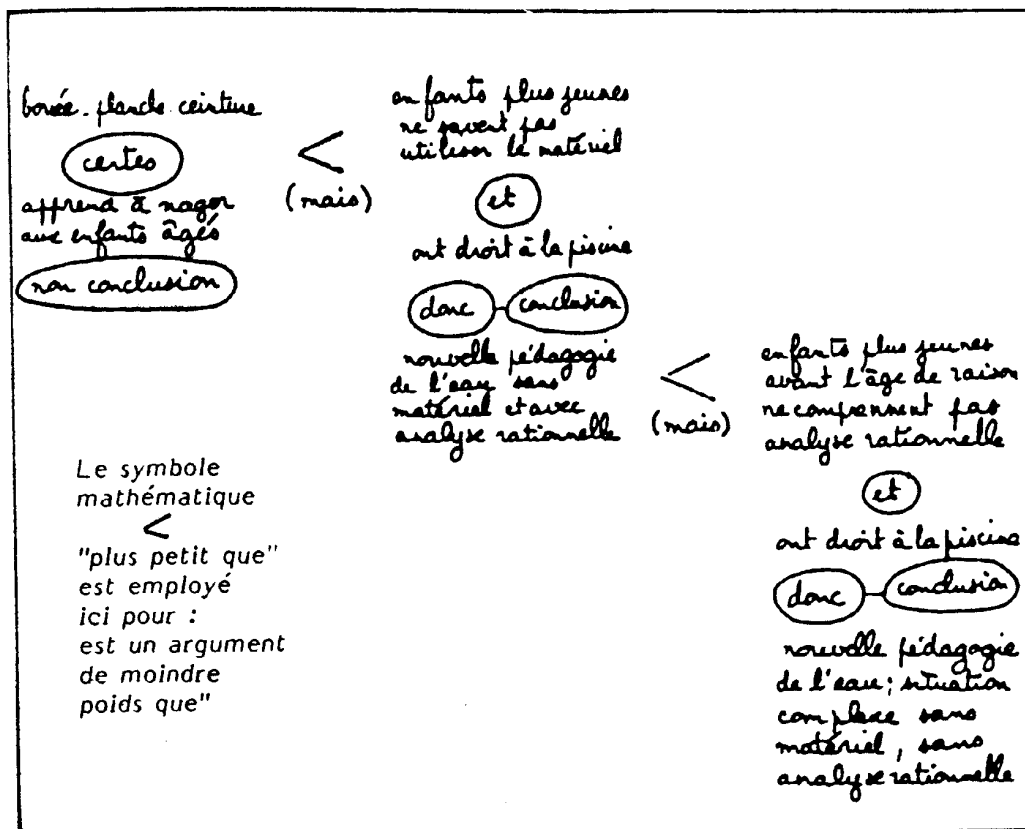 bouée - planche ceinture
certes
apprend à nager
aux enfants âgés
non conclusion
<
(mais)
enfants plus jeunes
ne savent pas
utiliser le matériel
et
ont droit à la piscine
donc - conclusion
nouvelle pédagogie
de l'eau sans
matériel et avec
analyse rationnelle
<
(mais)
enfants plus jeunes
avant l'âge de raison
ne comprennent pas
analyse rationnelle
et
ont droit à la piscine
donc - conclusion
nouvelle pédagogie
de l'eau ; situation
complexe sans
matériel, sans
analyse rationnelle
Le symbole
mathématique
<
"plus petit que"
est employé
ici pour :
est un argument
de moindre
poids que"